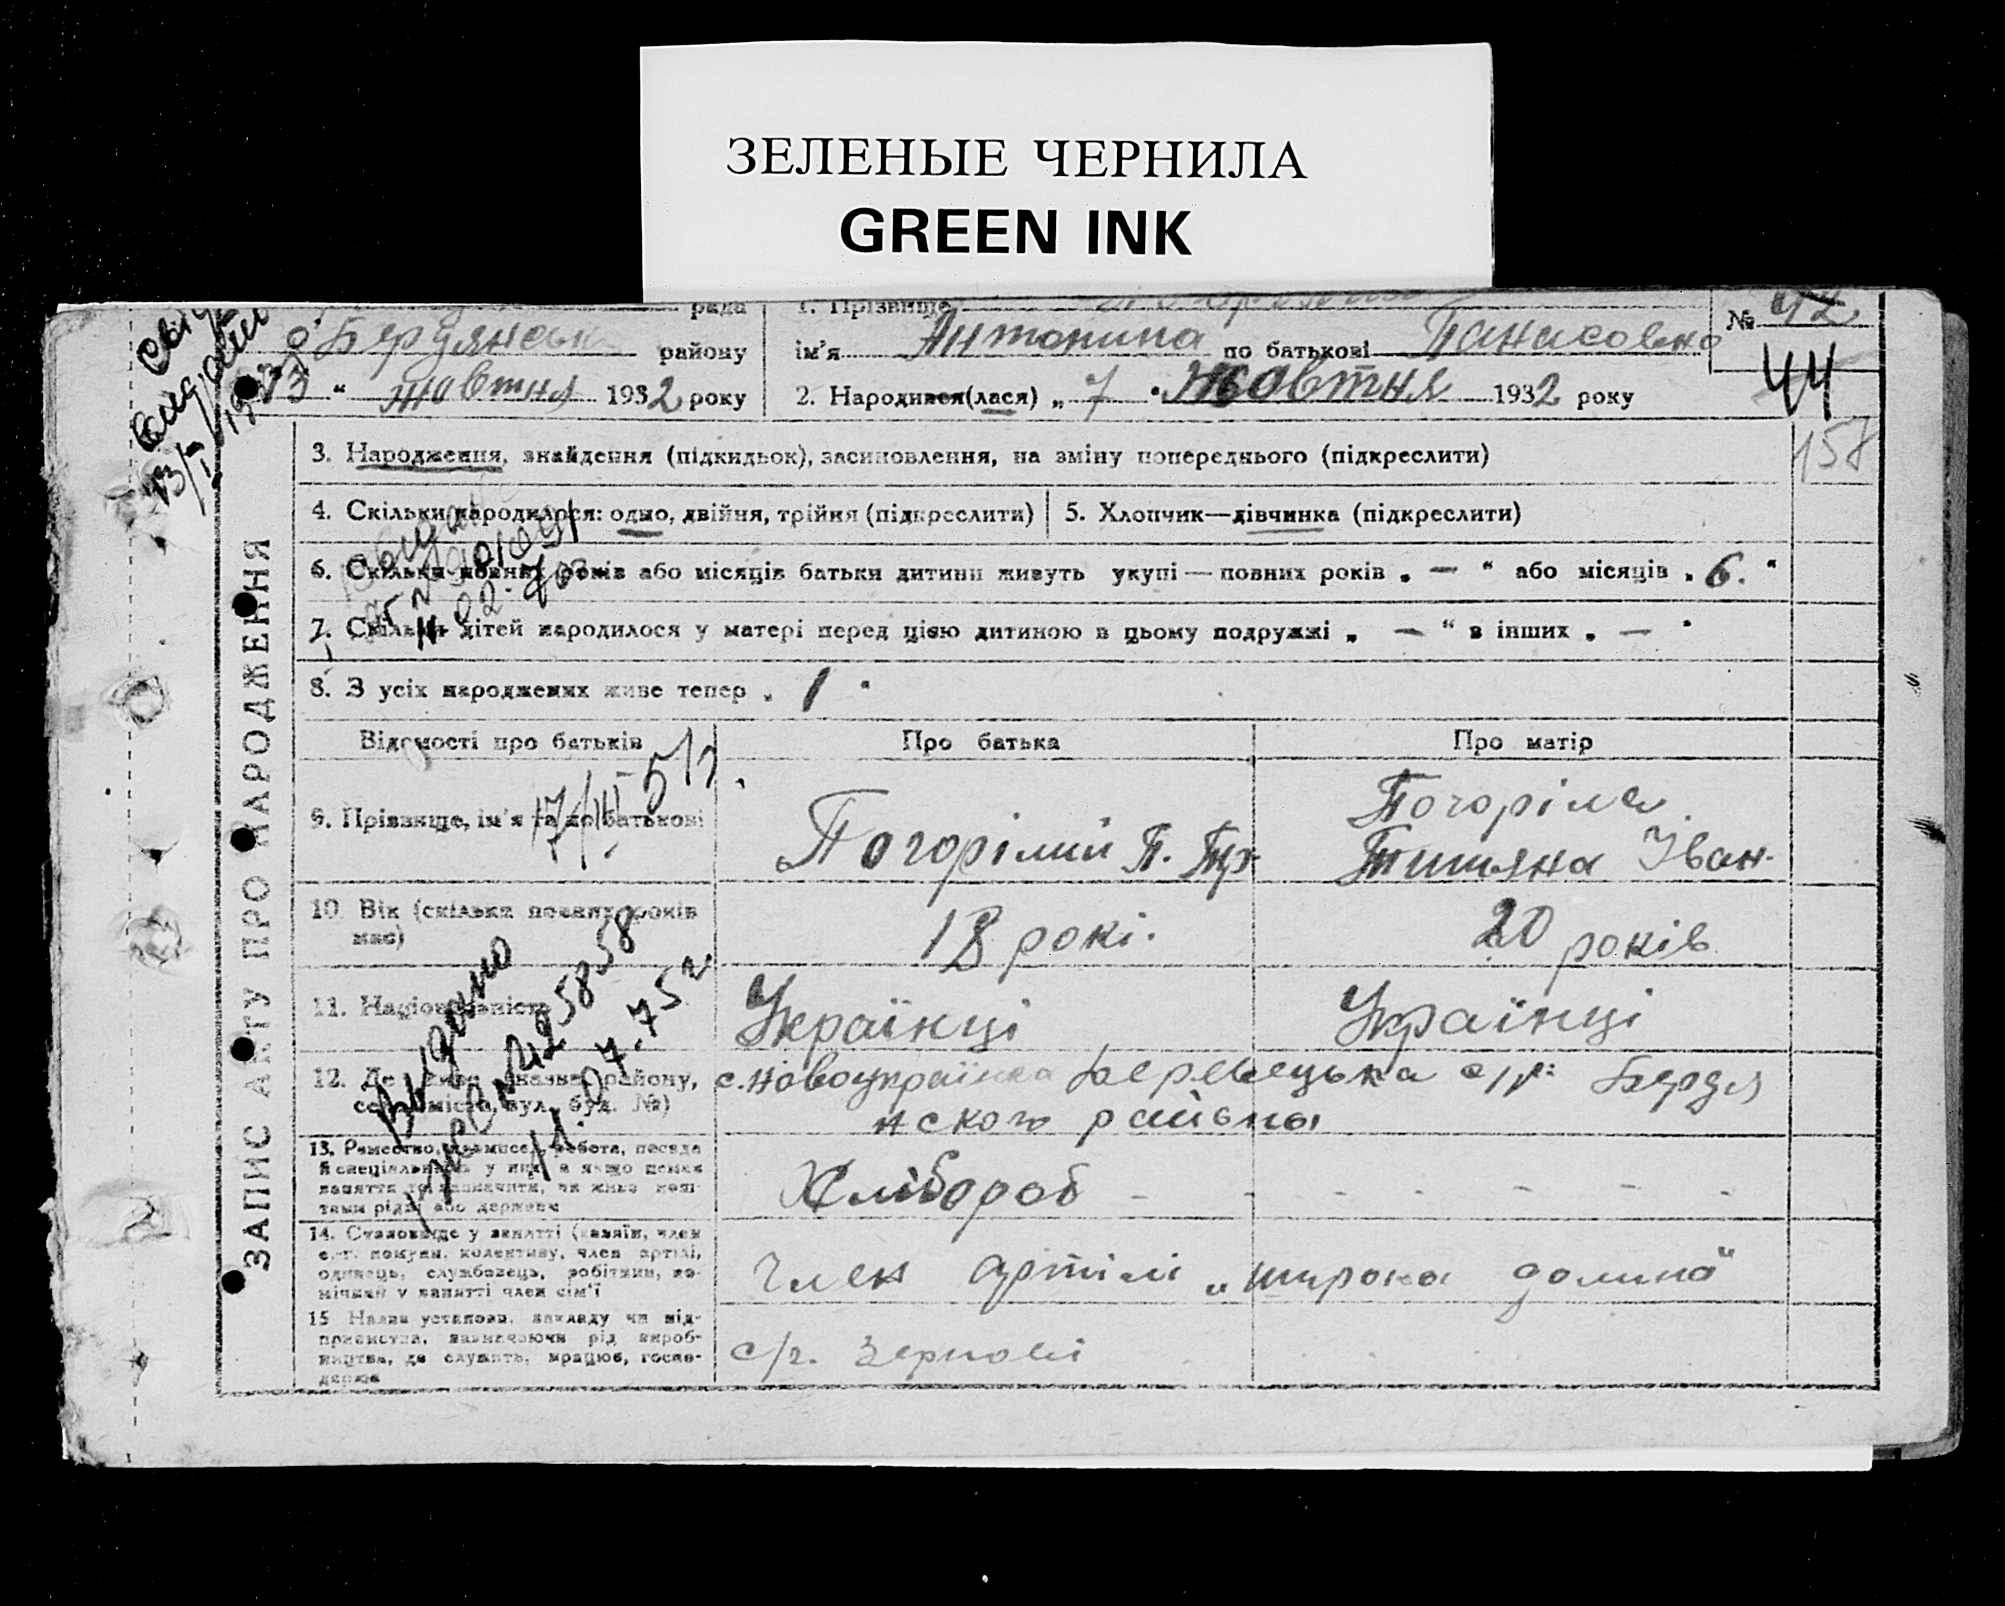 ЗЕЛЕНЫЕ ЧЕРНИЛА
GREEN INK
рада
1. Прізвище
№ 42
Бердянськ району
ім'я Антонина по батькові Панасовна
44
13 " жовтня 1932 року
2. Народився(лася) „ 7 " Жовтня 1932 року
158
ЗАПИС АКТУ ПРО НАРОДЖЕННЯ
3. Народження, знайдення (підкидьок), засиновлення, на зміну попереднього (підкреслити)
4. Скільки народилося: одно, двійня, трійня (підкреслити)
5. Хлопчик—дівчинка (підкреслити)
6. Скільки повних років або місяців батьки дитини живуть укупі — повних років „ — " або місяців „ 6. "
7. Скільки дітей народилося у матері перед цією дитиною в цьому подружжі „ — " в інших „ — "
8. З усіх народжених живе тепер „ 1 "
Відомості про батьків
Про батька
Про матір
9. Прізвище, ім'я та по батькові
Погорілий П. Тр.
Погоріла
Титяна Іван.
10. Вік (скільки повних років має)
18 рокі.
20 років
11. Національність
Українці
Українці
12. Де живе (назва району, села, міста, вул., буд. №)
с. Новоукраїнка Деревецька с/р. Бердя
нского району
13. Ремество, промисел, робота, посада
й спеціальність у них, а якщо немає
заняття то зазначити, чи живе кош-
тами рідні або держави
Хлібороб - - - - - - -
14. Становище у занятті (хазяїн, член
с.-г. комуни, колективу, член артілі,
одинець, службовець, робітник, по-
мічний у занятті член сім'ї
Член артілі „широка долина"
15. Назва установи, закладу чи під-
приємства, зазначаючи рід вироб-
ництва, де служить, працює, госпо-
дарює
с/г. Зернові
17/III 51
Видано
58 58 58
11.07.75 г